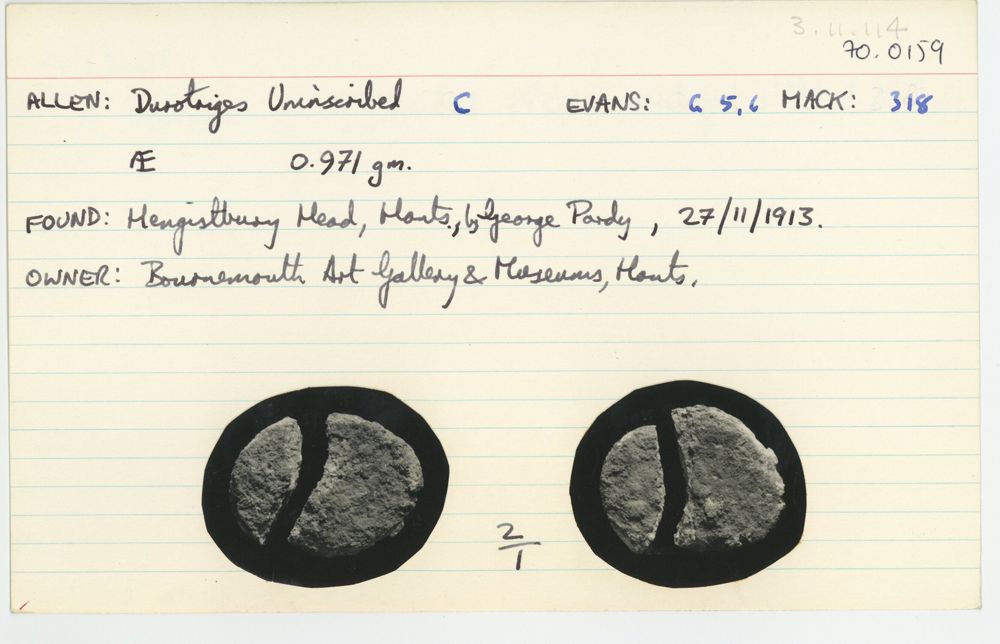 3.11.114
70.0159
ALLEN: Durotriges Uninscribed C EVANS: G 5,6 MACK: 318
Æ 0.971 gm.
FOUND: Hengistbury Head, Hants., by George Pardy, 27/11/1913.
OWNER: Bournemouth Art Gallery & Museums, Hants.
2
1